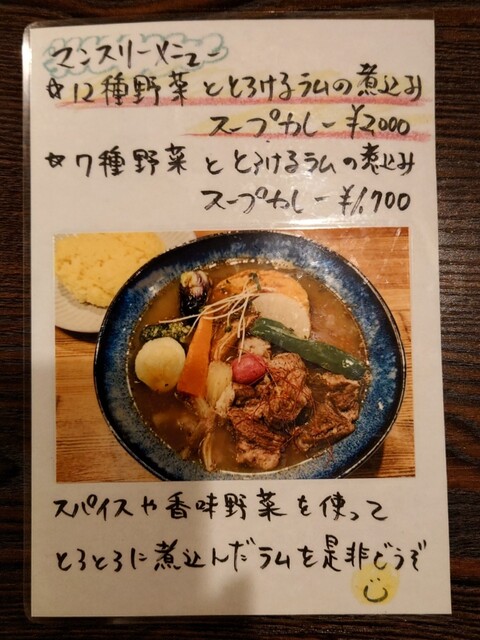 マンスリーメニュー
☆12種野菜ととろけるラムの煮込み
スープカレー ¥2000
☆7種野菜ととろけるラムの煮込み
スープカレー ¥1,700
スパイスや香味野菜を使って
とろとろに煮込んだラムを是非どうぞ